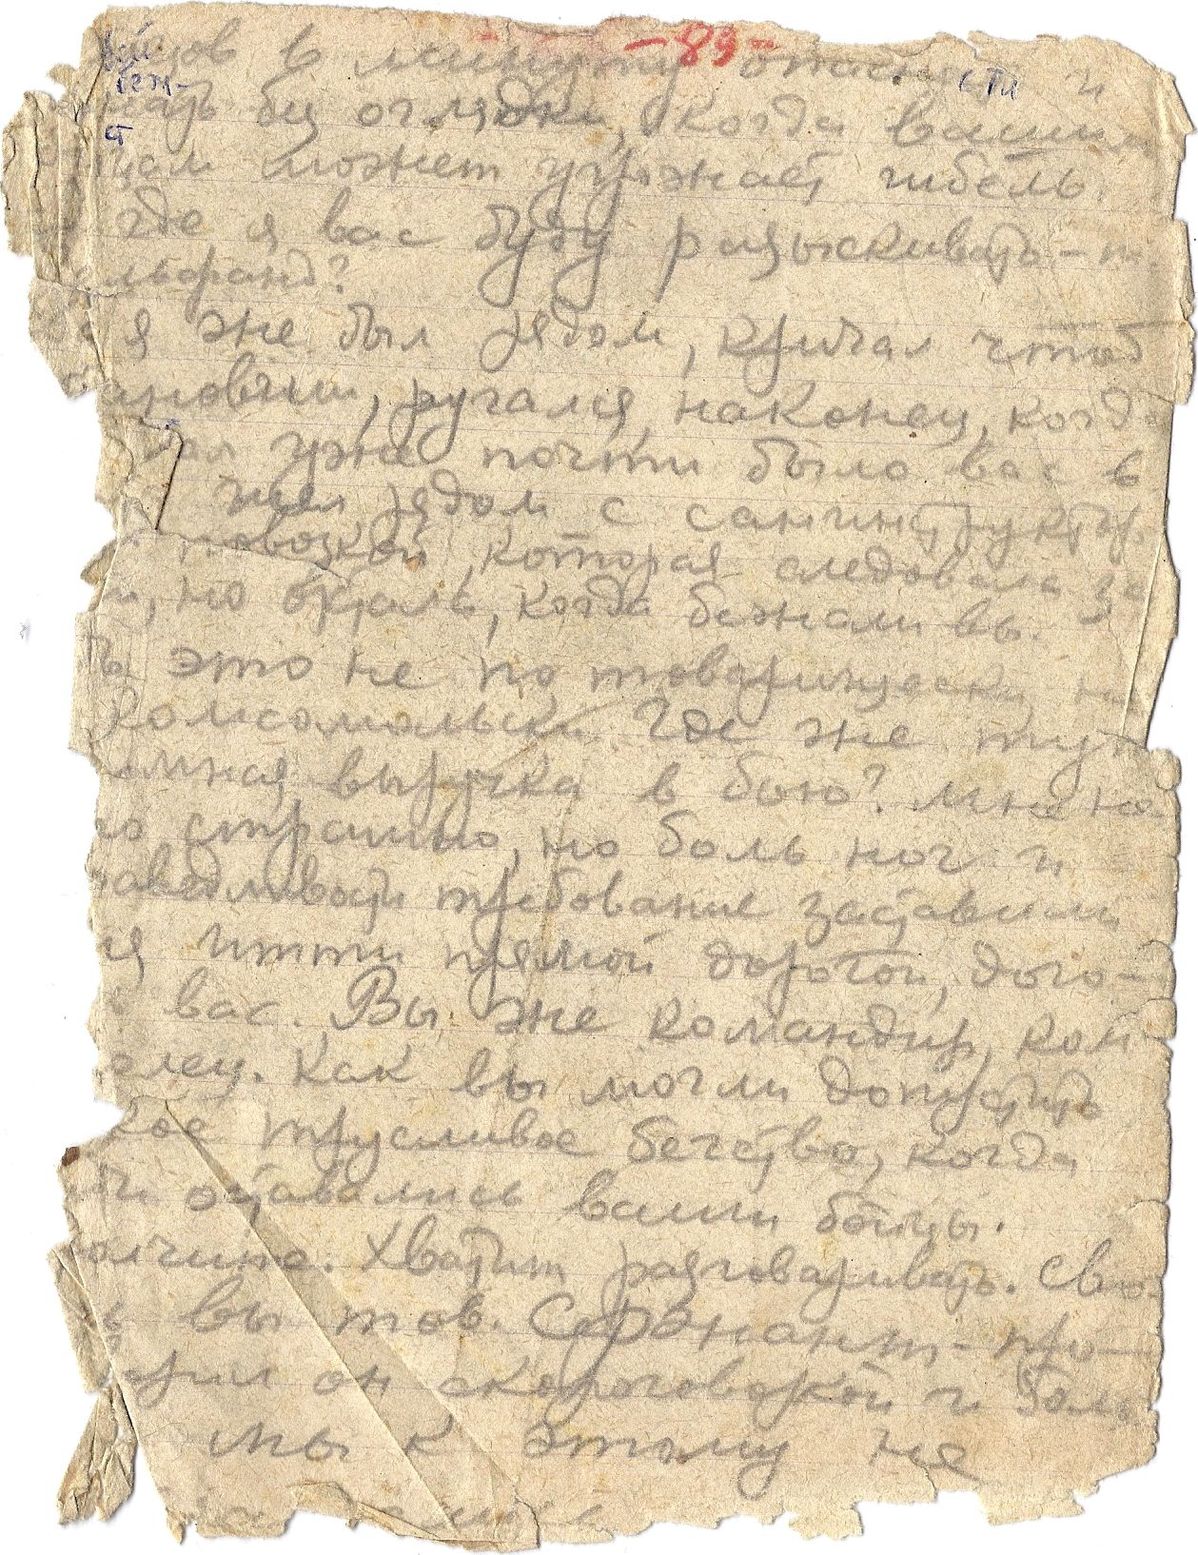 -89-
вой
беж-
ст
сти
в минуту и
без оглядки, когда вашим
может угрожает гибель.
где я вас буду разыскивать - т.
льфранд?
я же был рядом, кричал чтоб
ановили, ругался, наконец, когд
уже почти было вас в
шел рядом с санинструктор.
повозкой, которая следовала за
и, но отстал, когда бежали вы.
ь это не по товарищески, н
комсомольски. Где же тут
омная выручка в бою? Мне не
о страшно, но боль ног и
аведливости требование заставили
я итти прямой дорогой, дого-
вас. Вы же командир, ком
елец. Как вы могли допустить
кое трусливое бегство, когда
и оставались ваши бойцы.
олчите. Хватит разговаривать. Сво-
вы тов. Сержант - про-
орил он скороговоркой и боль
мы к этому не